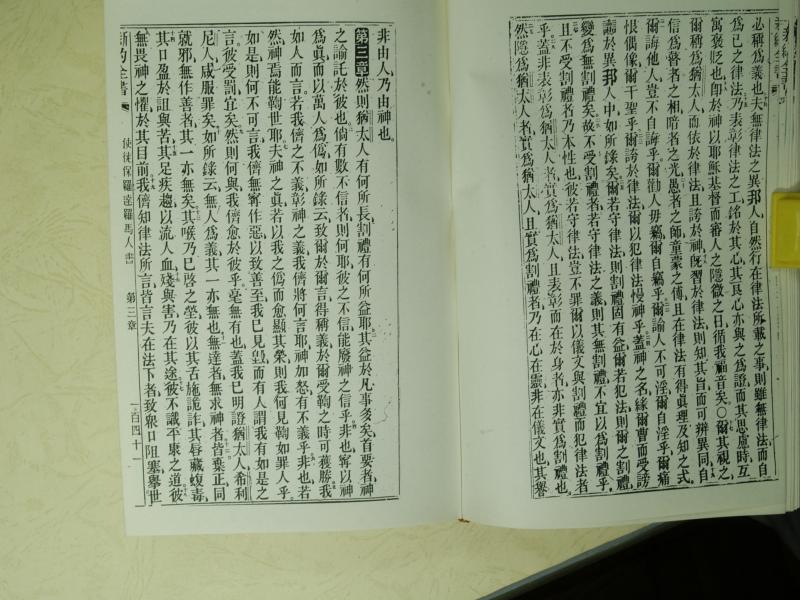 必稱爲義也夫無律法之異邦人自然行在律法所載之事則雖無律法而自
爲已之律法乃表彰律法之工銘於其心其良心亦與之爲證而其思慮時互
寓褒貶也卽於神以耶穌基督而審人之隱微之日循我福音矣○爾其視之
爾稱爲猶太人而依於律法且誇於神旣習於律法則知其旨而可辨異同自
信爲瞽者之相暗者之光愚者之師童蒙之傅且在律法有得眞理及知之式
爾誨他人豈不自誨乎爾勸人毋竊爾自竊乎爾諭人不可淫爾自淫乎爾痛
恨偶像爾干聖乎爾誇於律法爾以犯律法慢神乎蓋神之名緣爾曹而受謗
讟於異邦人中如所錄矣爾若守律法則割禮固有益爾若犯法則爾之割禮
變爲無割禮矣故不受割禮者若守律法之義則其無割禮不宜以爲割禮乎
且不受割禮者乃本性也彼若守律法豈不罪爾以儀文與割禮而犯律法者
乎蓋非表彰爲猶太人者實爲猶太人且表彰而在於身者亦非實爲割禮也
然隱爲猶太人者實爲猶太人且實爲割禮者乃在心在靈非在儀文也其譽
非由人乃由神也
第三章然則猶太人有何所長割禮有何所益耶其益於凡事多矣首要者神
之諭託於彼也倘有數不信者則何耶彼之不信能廢神之信乎非也寧以神
爲眞而以萬人爲僞如所錄云致爾於爾言得稱義於爾受鞫之時可獲勝我
如人而言若我儕之不義彰神之義我儕將何言耶神加怒有不義乎非也若
然神焉能鞫世耶夫神之眞若以我之僞而愈顯其榮則我何見鞫如罪人乎
如是則何不可言我儕無寧作惡以致善至我已見毀而有人謂我有如是之
言彼受罰宜矣然則何與我儕愈於彼乎毫無有也蓋我已明證猶太人希利
尼人咸服罪矣如所錄云無人爲義其一亦無也無達者無求神者皆棄正同
就邪無作善者其一亦無矣其喉乃已啓之塋彼以其舌施詭詐其唇藏蝮毒
其口盈於詛與苦其足疾趨以流人血殘與害乃在其途彼不識平康之道彼
無畏神之懼於其目前我儕知律法所言皆言夫在法下者致衆口阻塞舉世
使徒保羅達羅馬人書
第三章
一百四十一